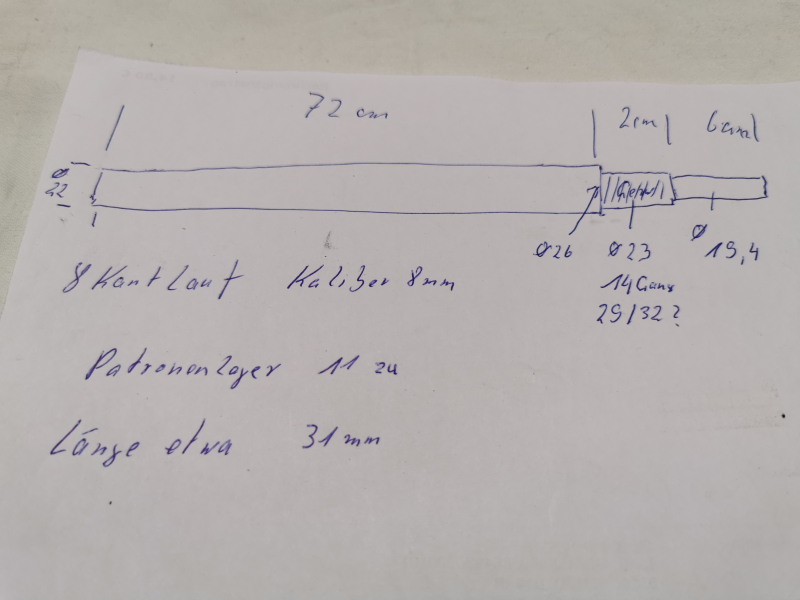 72 cm 2cm 6cm
ø 22
ø26 ø23 ø 19,4
14Gang
29/32?
8 Kant Lauf Kaliber 8mm
Patronenlager 11 zu
Länge etwa 31 mm